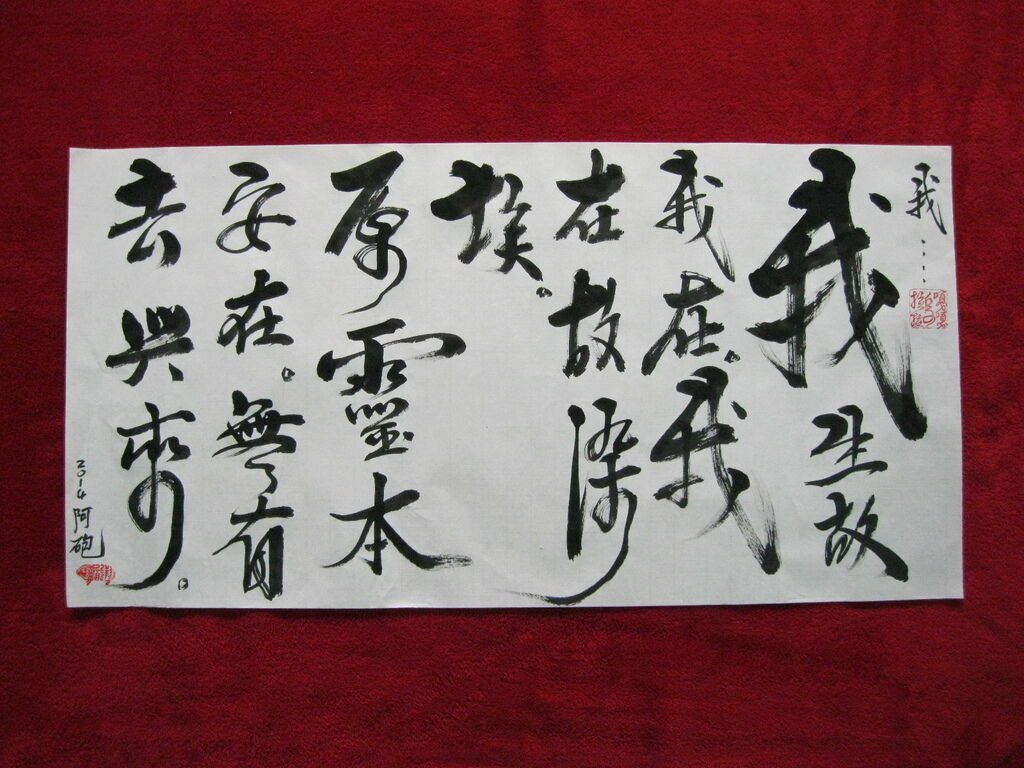 我……
我生故
我在。我
在故染
埃。
原靈本
安在。無有
去與來。
2014 阿砲